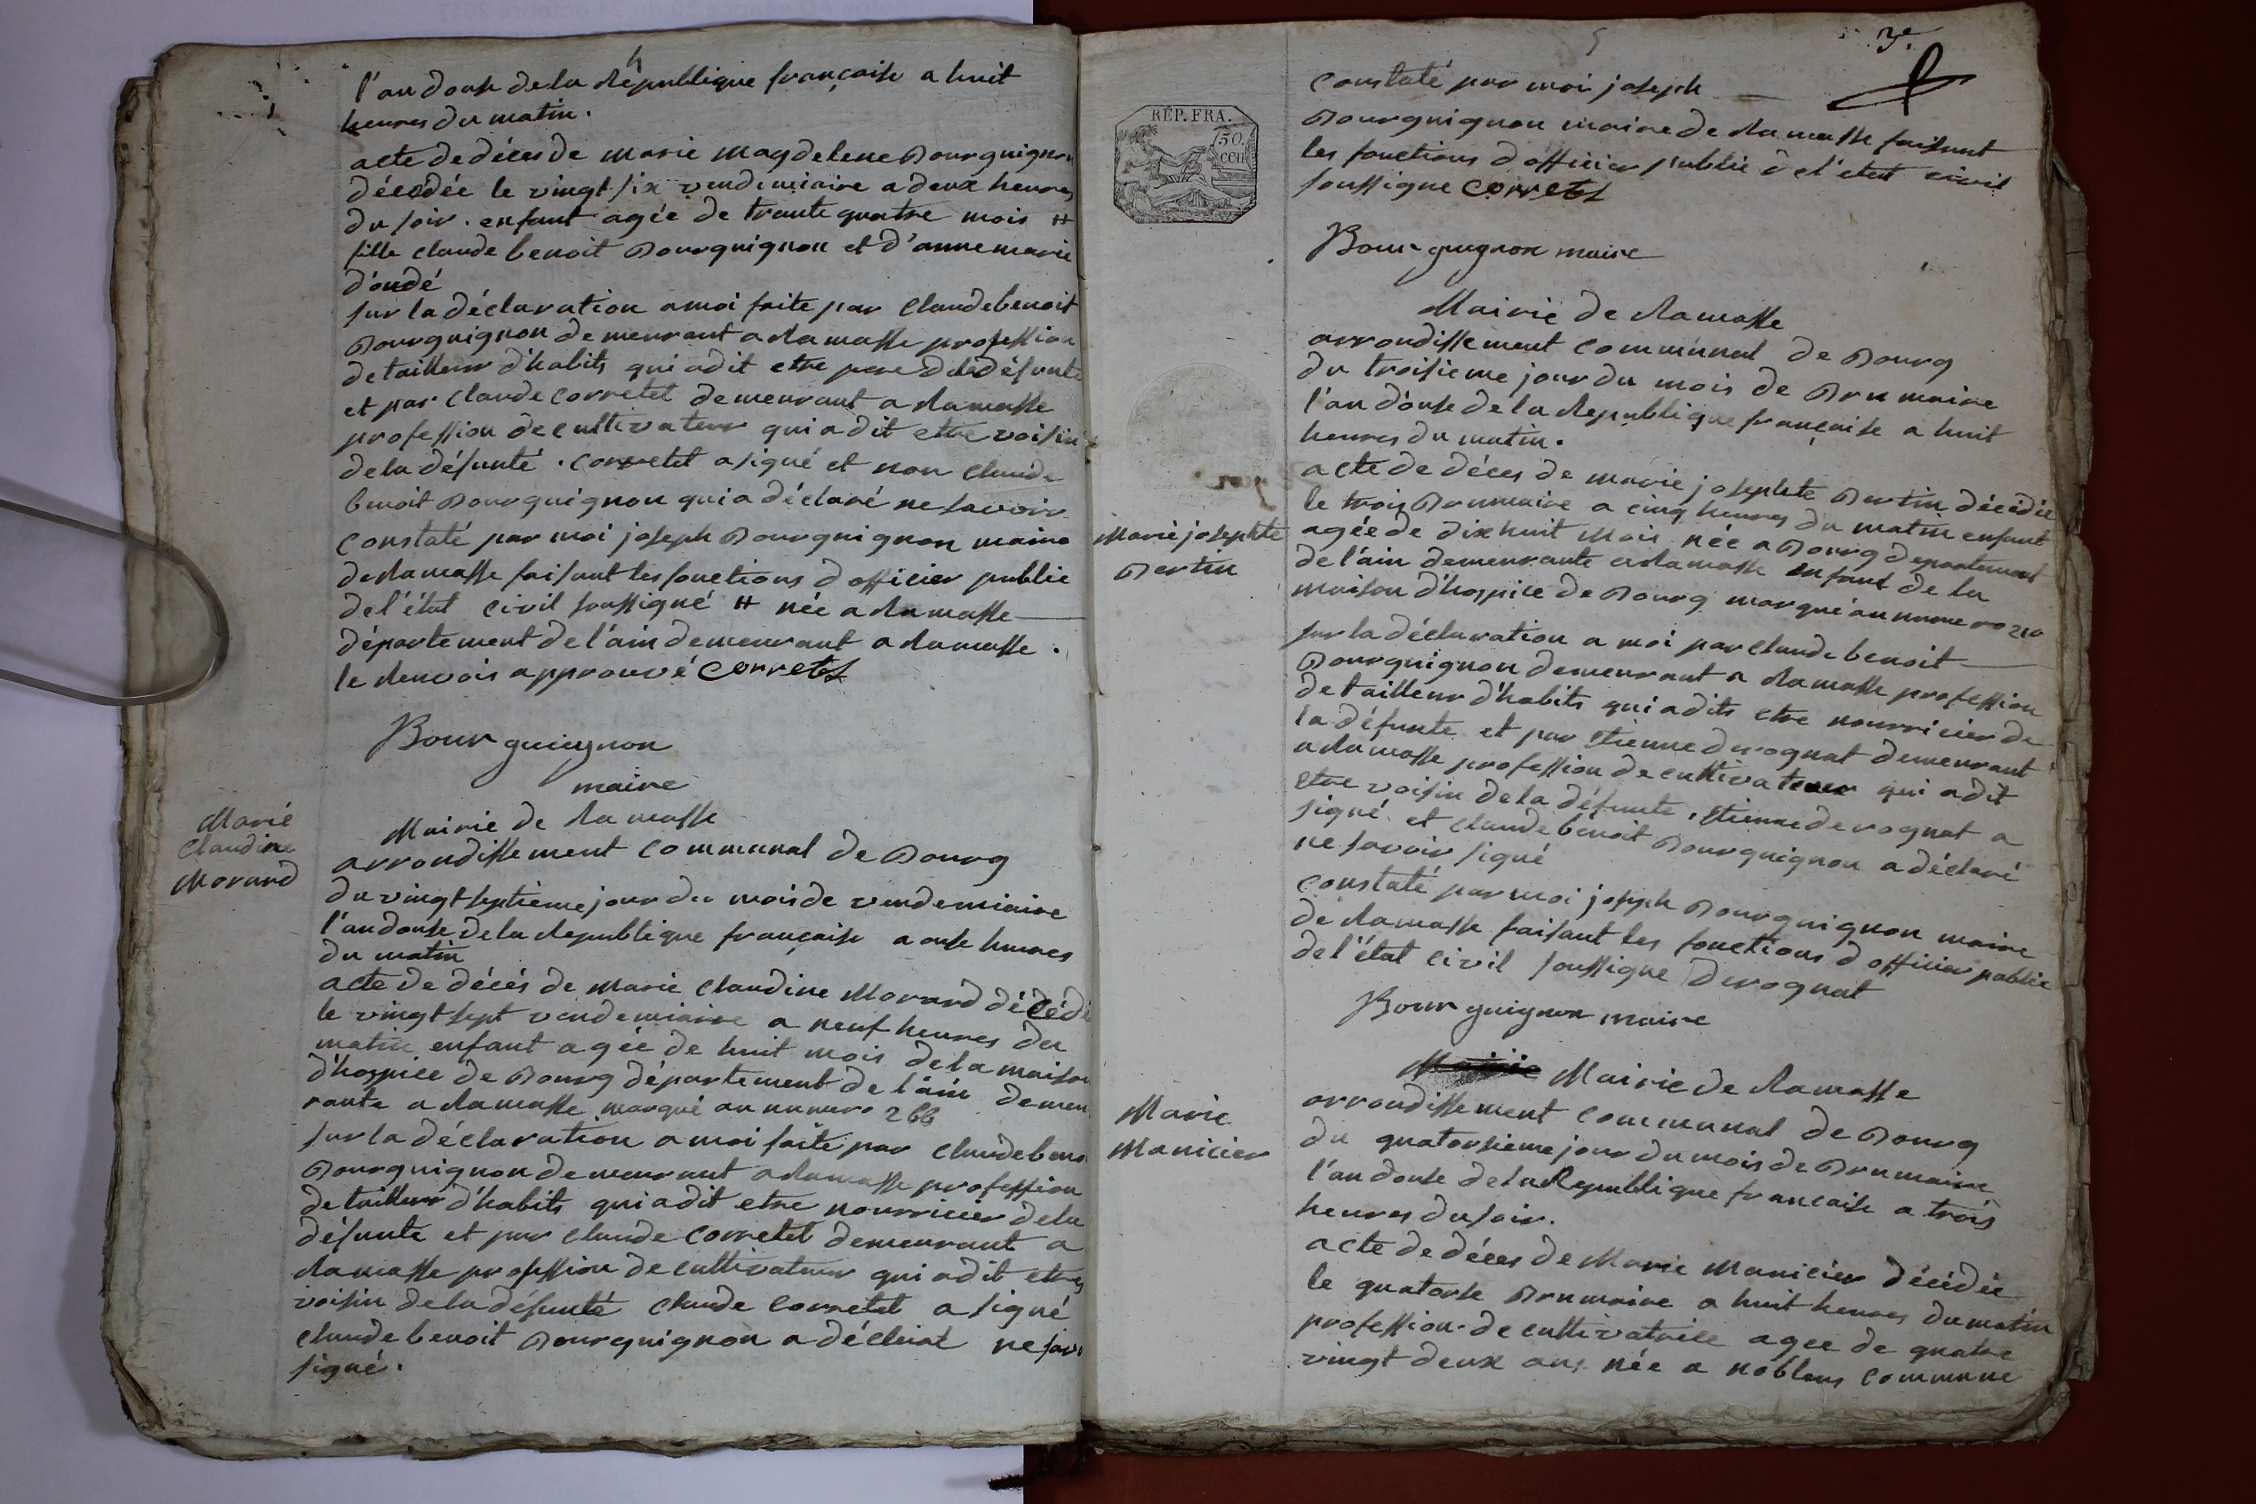 4
l'an douse de la République française a huit
heures du matin.
acte de déces de marie magdelene Bourguignon
décédée le vingt six vendemiaire a deux heures
du soir. enfant agée de trante quatre mois #
fille claude benoit Bourguignon et d'anne marie
doudé
sur la déclaration a moi faite par claude benoit
Bourguignon demeurant a Ramasse profession
de tailleur d'habits qui a dit etre pere de la défunte
et par claude corretet demeurant a Ramasse
profession de cultivateur qui a dit etre voisin
de la défunté. corretet a signé et non claude
benoit Bourguignon qui a déclaré ne savoir
constaté par moi joseph Bourguignon maire
de Ramasse faisant les fonctions d officier public
de l'état civil soussigné # née a Ramasse
département de l'ain demeurant a Ramasse.
le Renvois approuvé Corretet
Bourguignon
maire
Marie
Claudine
Morand
Mairie de Ramasse
arrondissement communal de Bourg
du vingt septieme jour du mois de vendemiaire
l'an douse de la Republique française a onse heures
du matin
acte de décés de marie claudine Morand décédé
le vingt sept vendemiaire a neuf heures du
matin enfant agée de huit mois de la maison
d'hospice de Bourg département de l'ain demeu
rante a Ramasse marqué au numero 266
sur la déclaration a moi faite par claude beno
Bourguignon demeurant a Ramasse profession
de tailleur d'habits qui a dit etre nourricier de la
défunte et par claude corretet demeurant a
Ramasse profession de cultivateur qui a dit etre
voisin de la défunté claude corretet a signé
claude benoit Bourguignon a déclaré ne savo
signé.
5
3e
constaté par moi joseph
Bourguignon maire de Ramasse faisant
les fonctions d officier public de l'état civil
soussigne Corretet
Bourguignon maire
RÉP. FRA.
50
cen
Mairie de Ramasse
arrondissement communal de Bourg
du troisieme jour du mois de Brumaire
l'an douse de la Republique française a huit
heures du matin.
Marie josephte
Bertin
acte de déces de marie josephte Bertin décédée
le trois Brumaire a cinq heures du matin enfant
agée de dix huit mois née a Bourg département
de l'ain demeurante a Ramasse enfant de la
maison d'hospice de Bourg marqué au numero 210
sur la déclaration a moi par claude benoit
Bourguignon demeurant a Ramasse profession
de tailleur d'habits qui a dits etre nourricier de
la défunte et par Etienne derognat demeurant
a Ramasse profession de cultivateur qui a dit
etre voisin de la défunte, Etienne derognat a
signé et claude benoit Bourguignon a déclaré
ne savoir signé
constaté par moi joseph Bourguignon maire
de Ramasse faisant les fonctions d officier public
de l'état civil soussigne Derognat
Bourguignon maire
Mairie Mairie de Ramasse
Marie
Manicier
arrondissement communal de Bourg
du quatorsieme jour du mois de Brumaire
l'an douse de la Republique francaise a trois
heures du soir.
acte de déces de Marie Manicier décédée
le quatorse Brumaire a huit heures du matin
profession de cultivatrice agee de quatre
vingt deux ans née a noblens commune